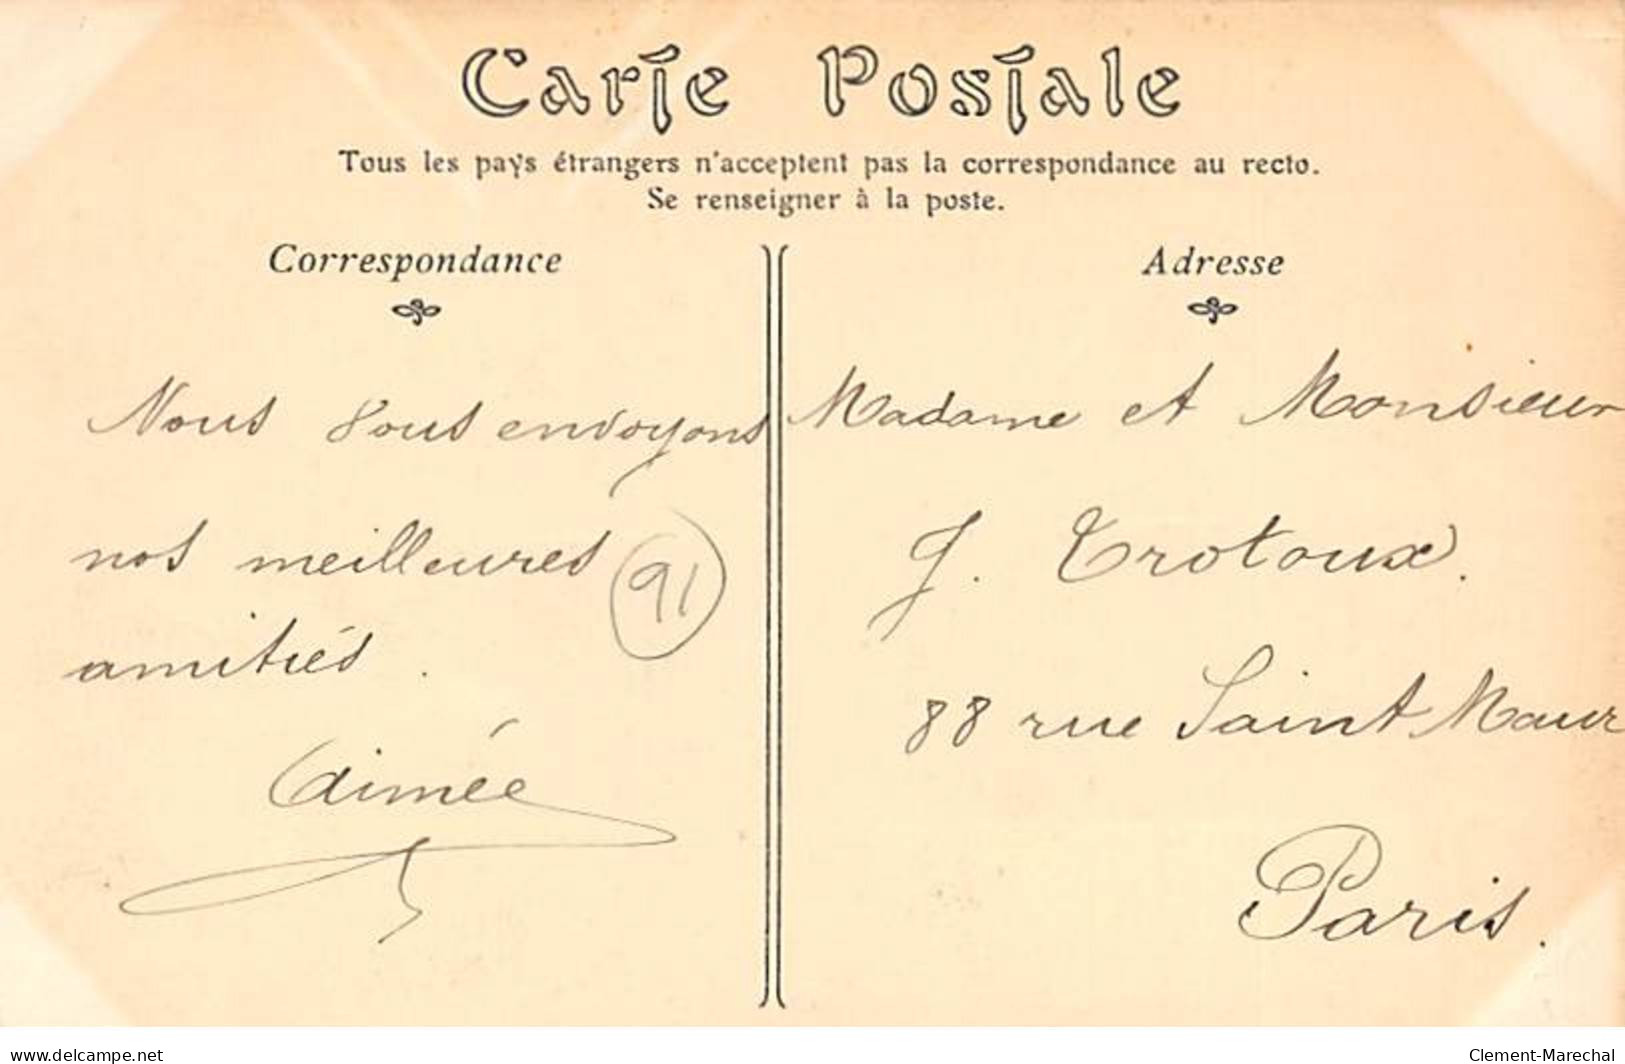 Carte Postale
Tous les pays étrangers n'acceptent pas la correspondance au recto.
Se renseigner à la poste.
Correspondance
Nous vous envoyons
nos meilleures
amitiés.
Aimée
91
Adresse
Madame et Monsieur
J. Trotoux.
88 rue Saint Maur
Paris.
www.delcampe.net
Clement-Marechal